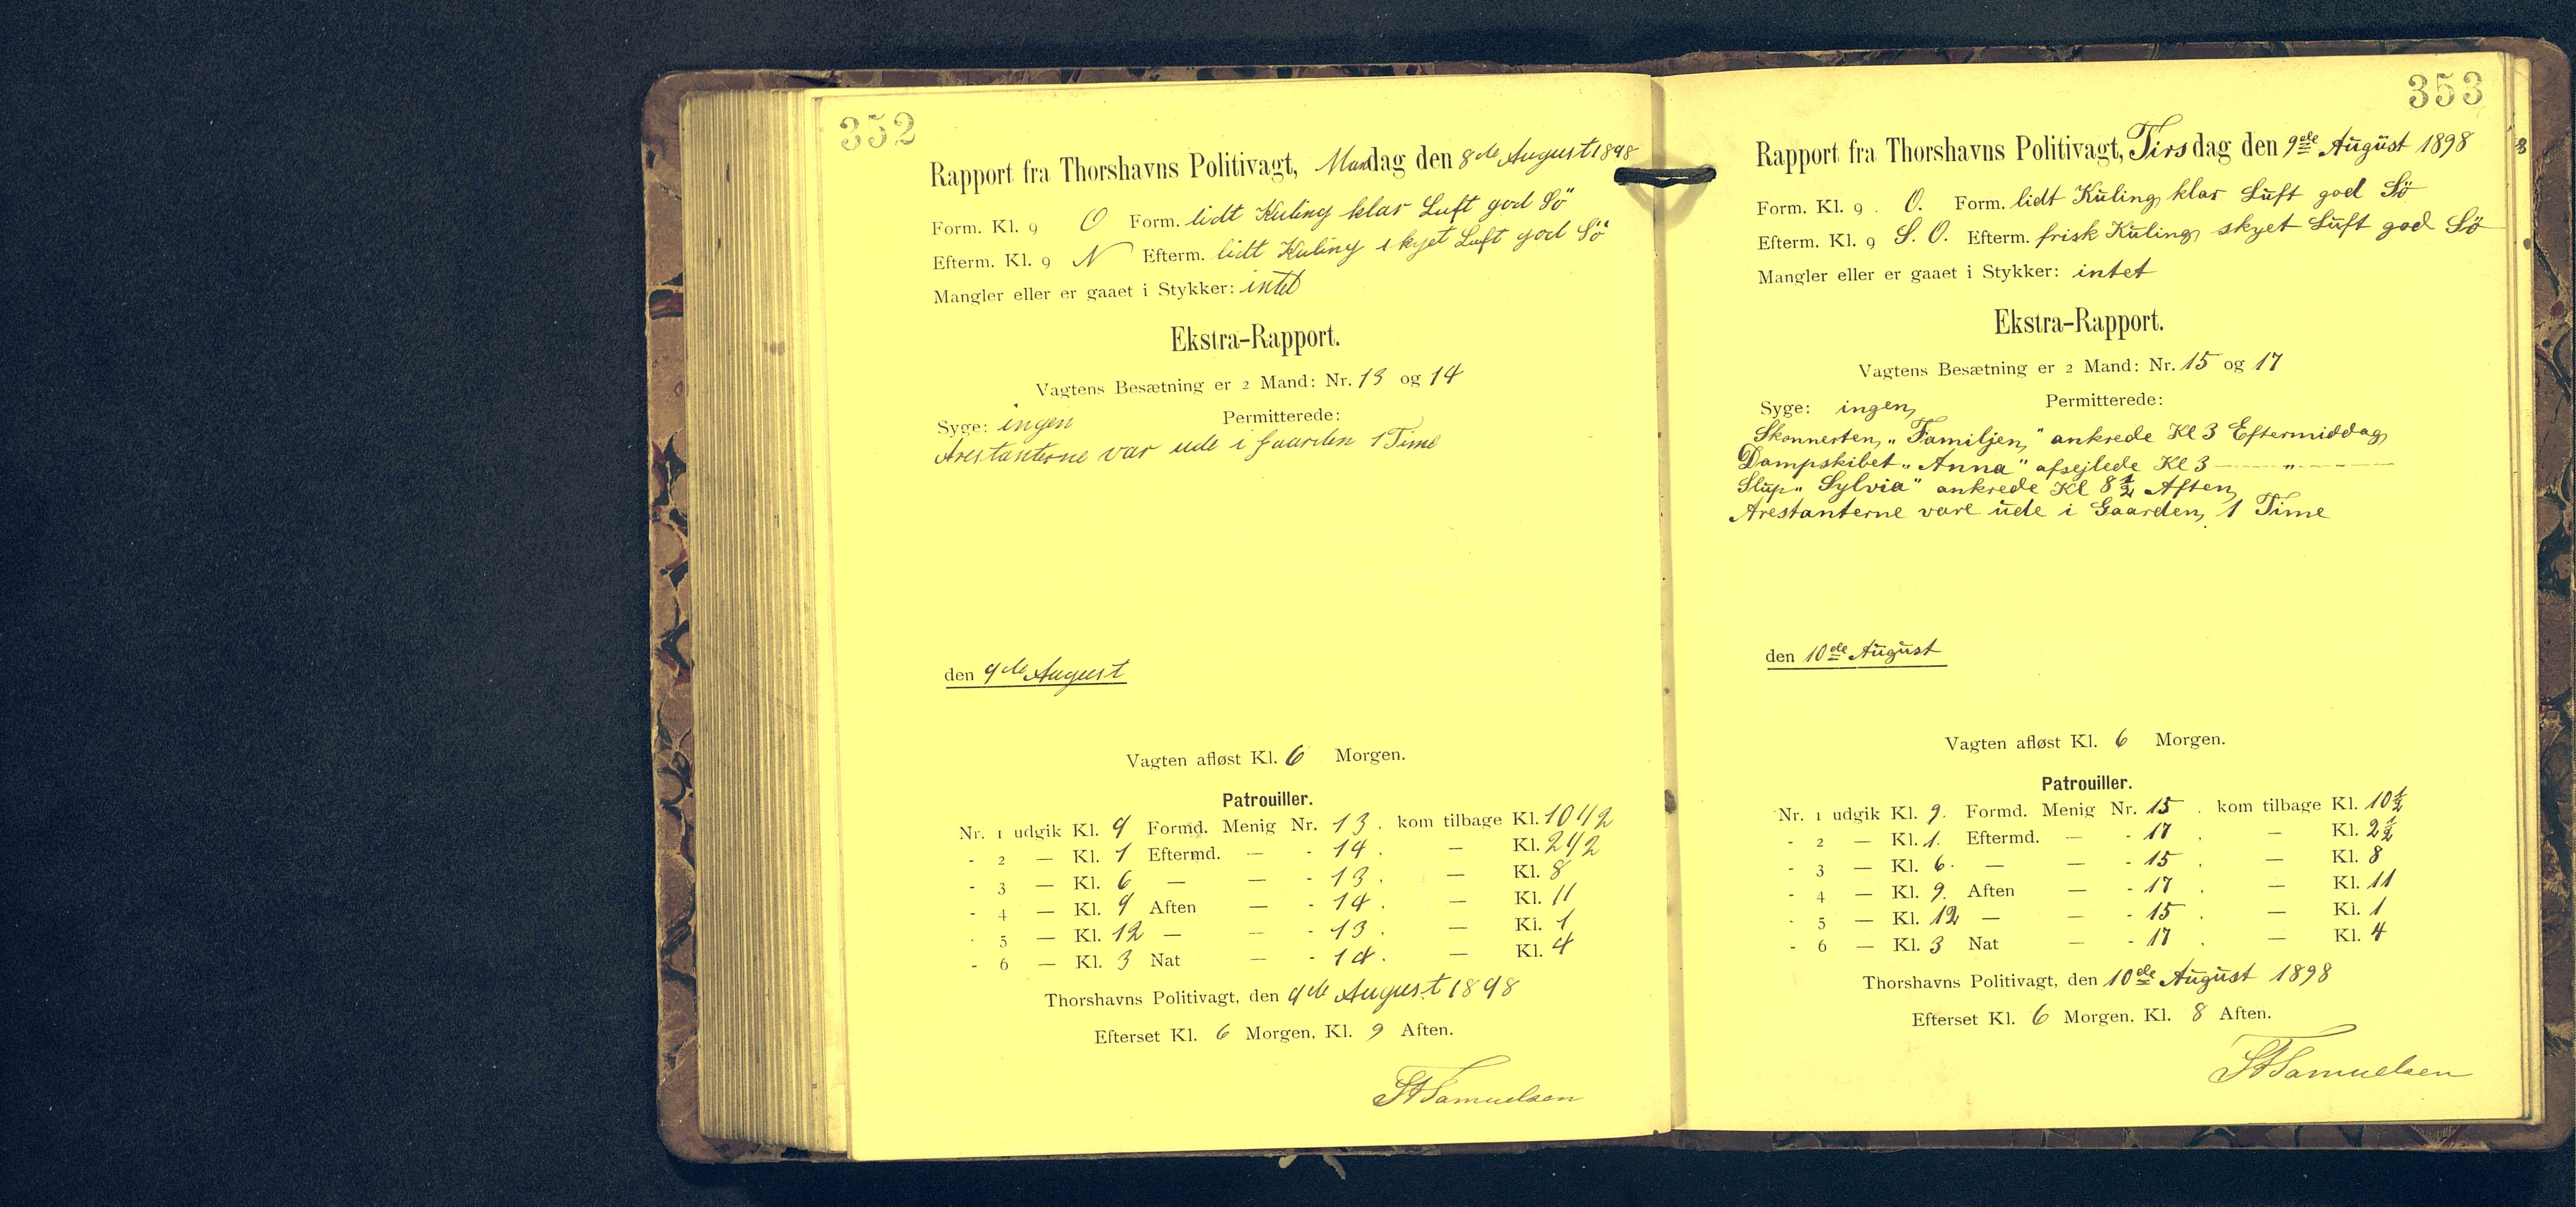 352
Rapport fra Thorshavns Politivagt, Mandag den 8de August 1898
Form. Kl. 9 O Form. lidt Kuling klar Luft god Sö
Efterm. Kl. 9 N Efterm. lidt Kuling skyet Luft god Sö
Mangler eller er gaaet i Stykker: intet
Ekstra-Rapport.
Vagtens Besætning er 2 Mand: Nr. 13 og 14
Syge: ingen Permitterede:
Arestanterne var ude i Gaarden 1 Time
den 9de August
Vagten afløst Kl. 6 Morgen.
Patrouiller.
Nr. 1 udgik Kl. 9 Formd. Menig Nr. 13. kom tilbage Kl. 10 1/2
- 2 — Kl. 1 Eftermd. — - 14. — Kl. 2 1/2
- 3 — Kl. 6 — — - 13. — Kl. 8
- 4 — Kl. 9 Aften — - 14. — Kl. 11
- 5 — Kl. 12 — — - 13. — Kl. 1
- 6 — Kl. 3 Nat — - 14. — Kl. 4
Thorshavns Politivagt, den 9de August 1898
Efterset Kl. 6 Morgen, Kl. 9 Aften.
Samuelsen
353
Rapport fra Thorshavns Politivagt, Tirsdag den 9de August 1898
Form. Kl. 9. O. Form. lidt Kuling klar Luft god Sö
Efterm. Kl. 9 S. O. Efterm. frisk Kuling skyet Luft god Sö
Mangler eller er gaaet i Stykker: intet
Ekstra-Rapport.
Vagtens Besætning er 2 Mand: Nr. 15 og 17
Syge: ingen Permitterede:
Skonnerten „Familjen" ankrede Kl 3 Eftermiddag
Dampskibet „Anna" afsejlede Kl 3 — „ —
Slup „Sylvia" ankrede Kl 8 1/2 Aften
Arestanterne vare ude i Gaarden 1 Time
den 10de August
Vagten afløst Kl. 6 Morgen.
Patrouiller.
Nr. 1 udgik Kl. 9. Formd. Menig Nr. 15. kom tilbage Kl. 10 1/2
- 2 — Kl. 1. Eftermd. — - 17. — Kl. 2 1/2
- 3 — Kl. 6. — — - 15. — Kl. 8
- 4 — Kl. 9. Aften — - 17. — Kl. 11
- 5 — Kl. 12 — — - 15. — Kl. 1
- 6 — Kl. 3 Nat — - 17. — Kl. 4
Thorshavns Politivagt, den 10de August 1898
Efterset Kl. 6 Morgen, Kl. 8 Aften.
Samuelsen